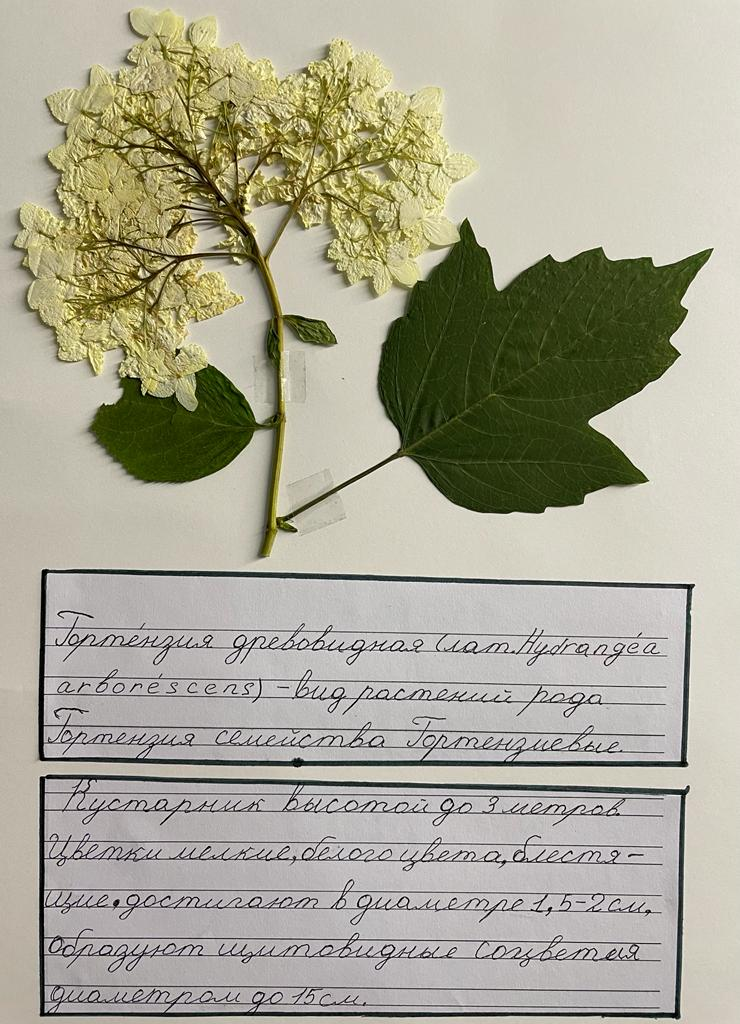 Горте́нзия древовидная (лат. Hydrangéa
arboréscens) – вид растений рода
Гортензия семейства Гортензиевые.
Кустарник высотой до 3 метров.
Цветки мелкие, белого цвета, блестя-
щие, достигают в диаметре 1,5-2 см,
образуют щитовидные соцветия
диаметром до 15 см.